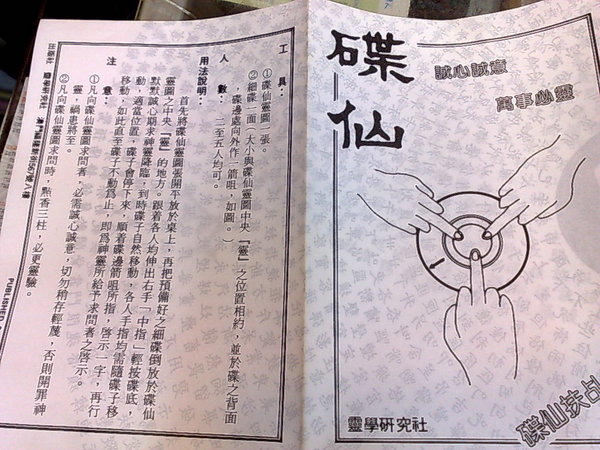 碟仙
誠心誠意
萬事必靈
靈學研究社
碟仙扶乩
工具：
①碟仙靈圖一張。
②細碟一面（大小與碟仙靈圖中央『靈』之位置相約，並於碟之背面
碟邊處向外作一箭咀，如圖。）
人數：二至五人均可。
用法說明：
首先將碟仙靈圖張開平放於桌上，再把預備好之細碟倒放於碟仙
靈圖之中央『靈』的地方。跟着各人均伸出右手「中指」輕按碟底，
默默誠心期求神靈降臨，到時碟子自然移動，各人手指均需隨碟子移
動，適當位置，碟子會停下來，順着碟邊箭咀所指，啓示一字，再行
移動，如此直至碟子不動為止，即為神靈所給予求問者之啓示。
注意：
①凡向碟仙靈圖求問者，必需誠心誠意，切勿稍存輕蔑，否則開罪神
靈，禍患將至。
②凡向碟仙靈圖求問時，點香三柱，必更靈驗。
出版社 靈學研究社
PUBLISHED